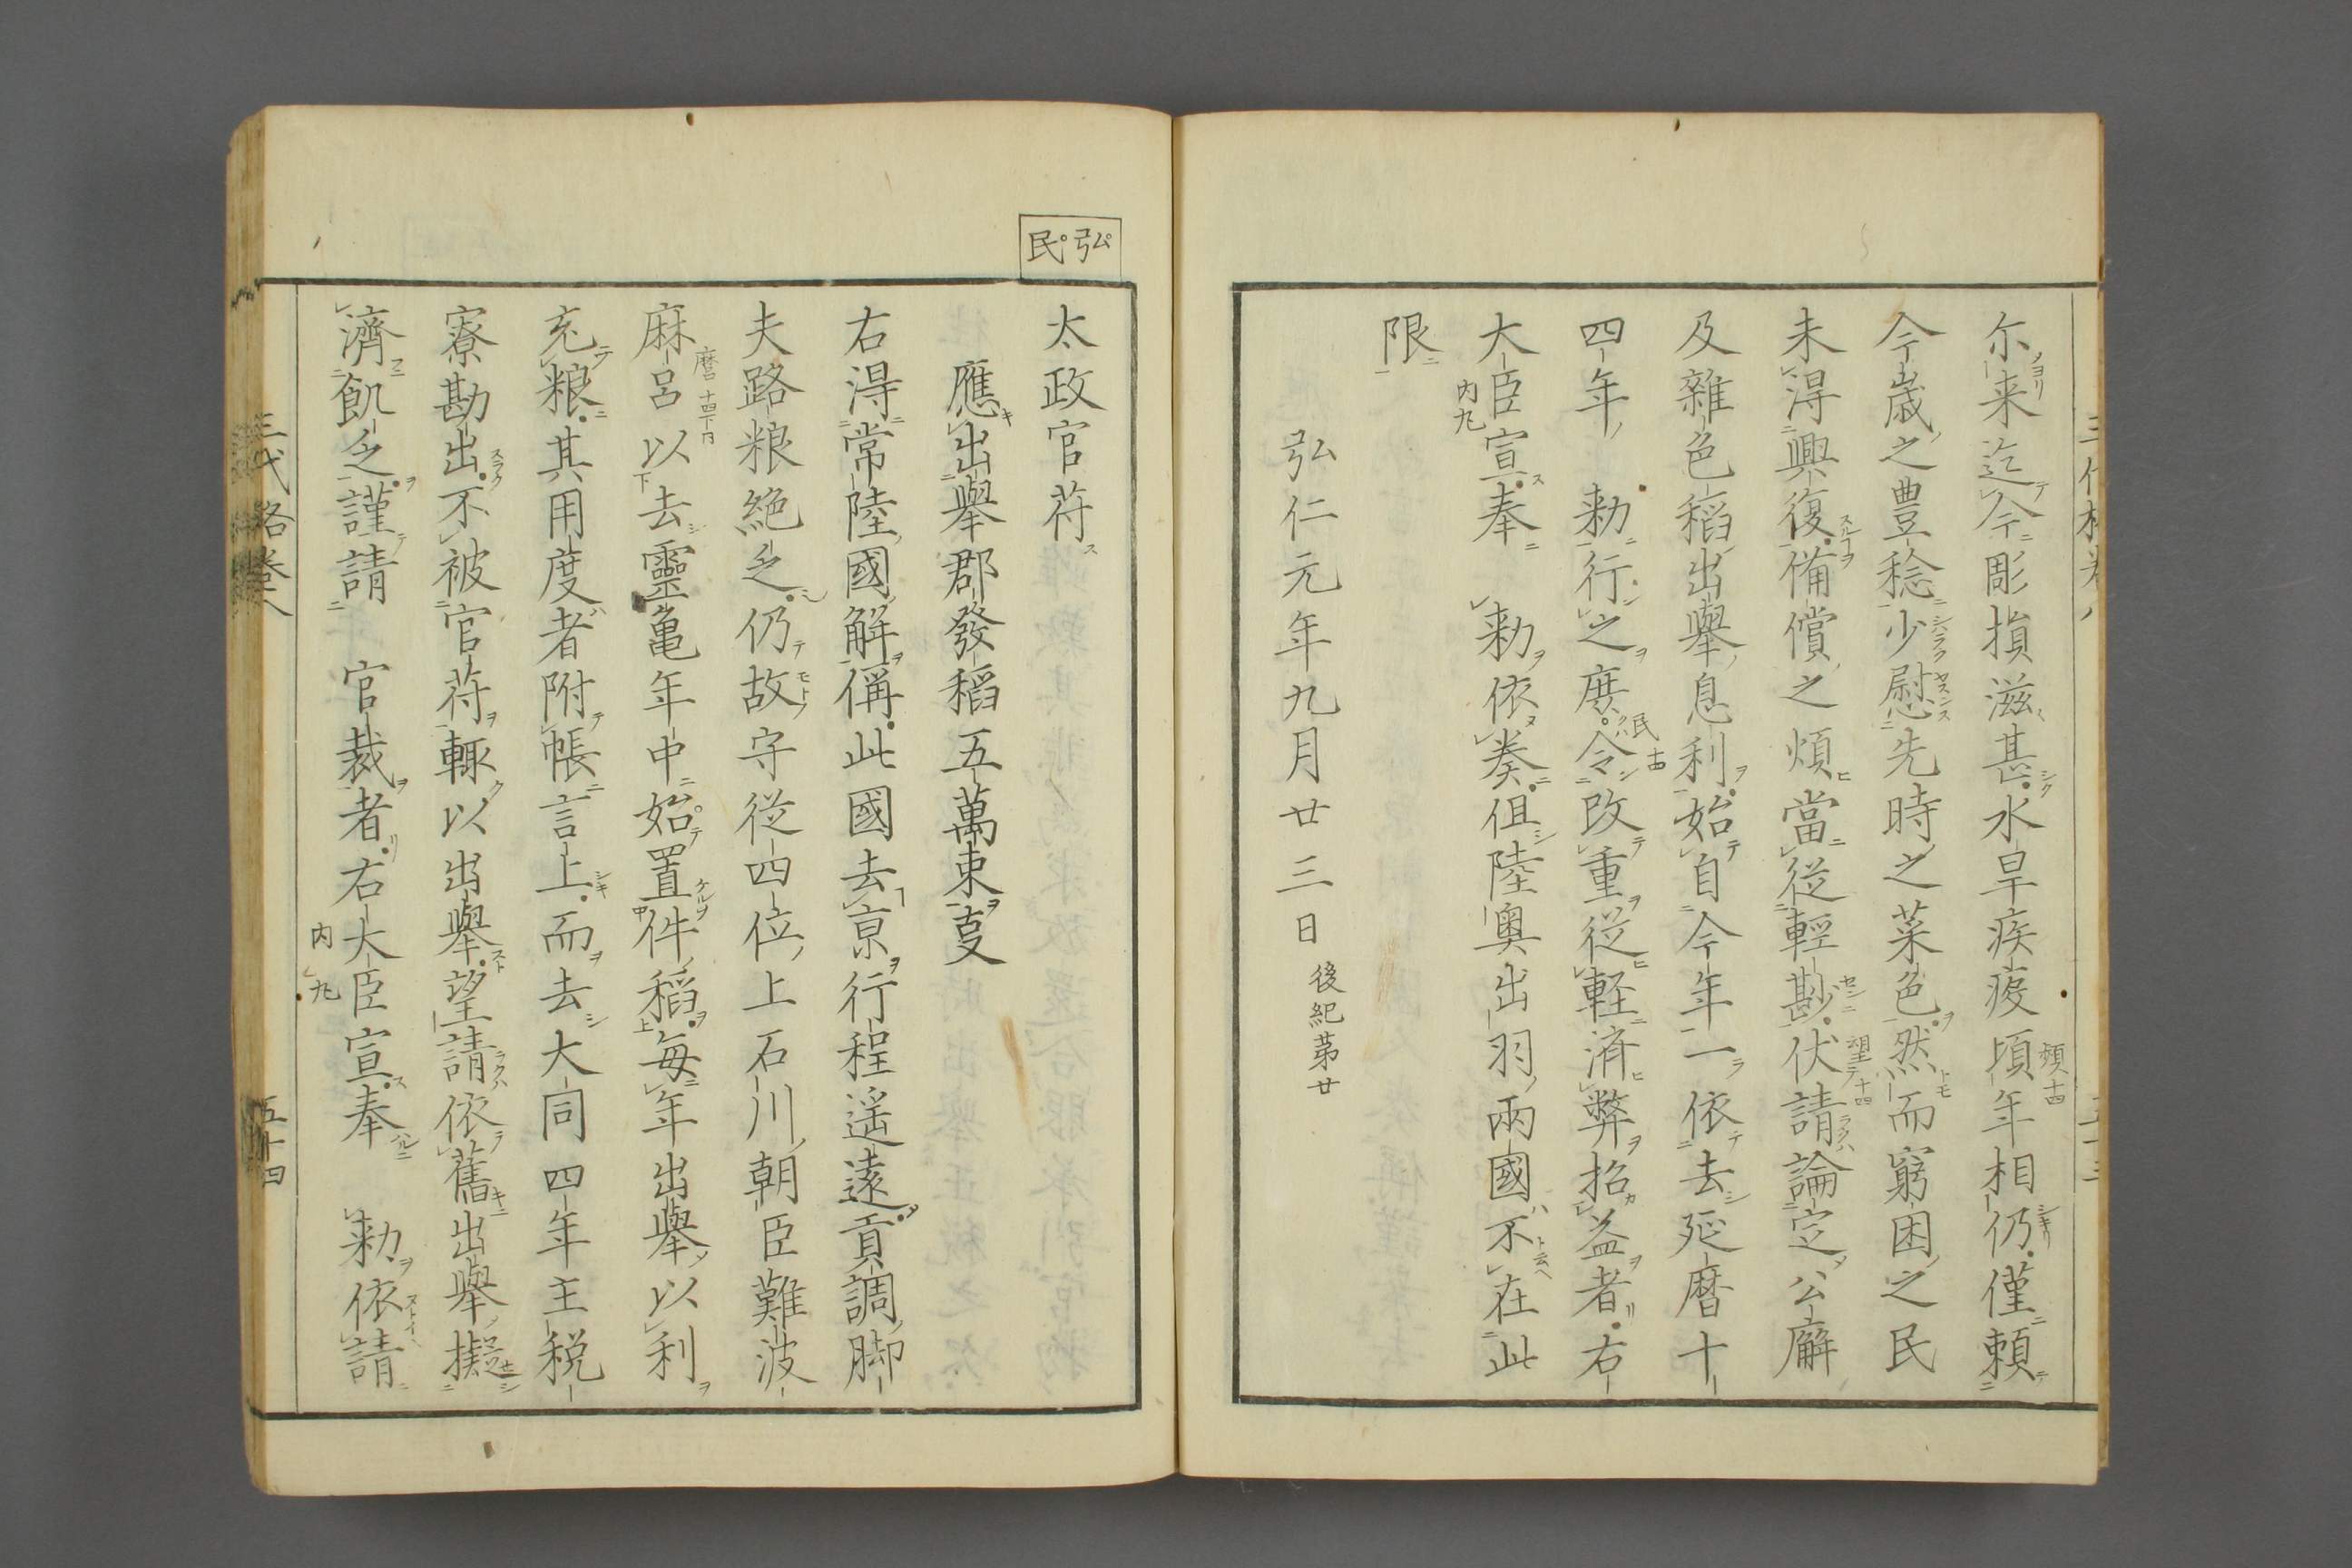 尓来迄今彫損滋甚水旱疾疫頃年相仍僅頼
今歳之豊稔少慰先時之菜色然而窮困之民
未得興復備償之煩當従輕尠伏請論定公廨
及雜色稻出舉息利始自今年一依去延暦十
四年 勅行之庶令改重従軽済弊招益者右
大臣宣奉 勅依奏但陸奥出羽兩國不在此
内九
限
弘仁元年九月廿三日 後紀第廿
弘民
太政官苻
應出舉郡發稻五萬束叓
右得常陸國解偁此國去亰行程遥遠貢調脚
夫路粮絶乏仍故守従四位上石川朝臣難波
麻呂以去靈亀年中始置件稻毎年出舉以利
充粮其用度者附帳言上而去大同四年主税
寮勘出不被官苻輙以出舉望請依舊出舉擬
濟飢乏謹請 官裁者右大臣宣奉 勅依請
内九
三代格巻八 五十四